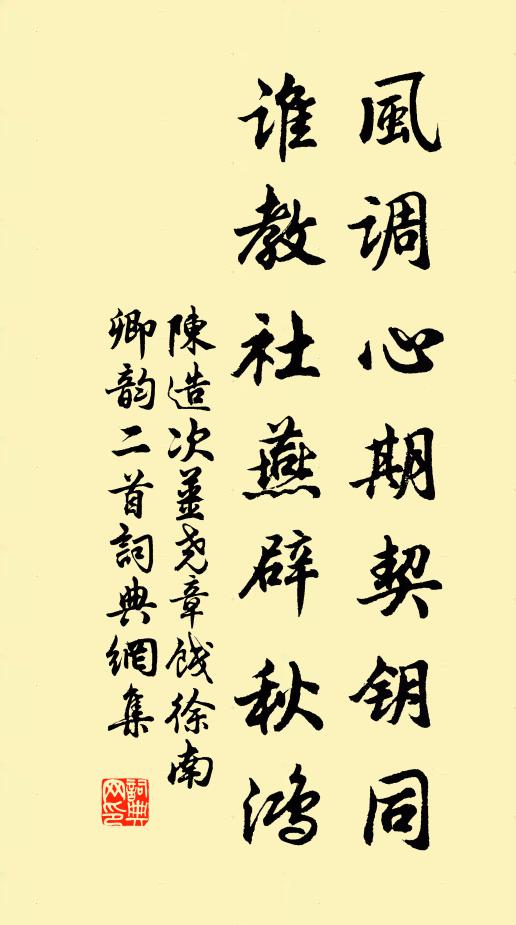 風调心期契钥同
谁教社燕辟秋鸿
陳造次薑尧章饯徐南
卿韵二首詞典網集